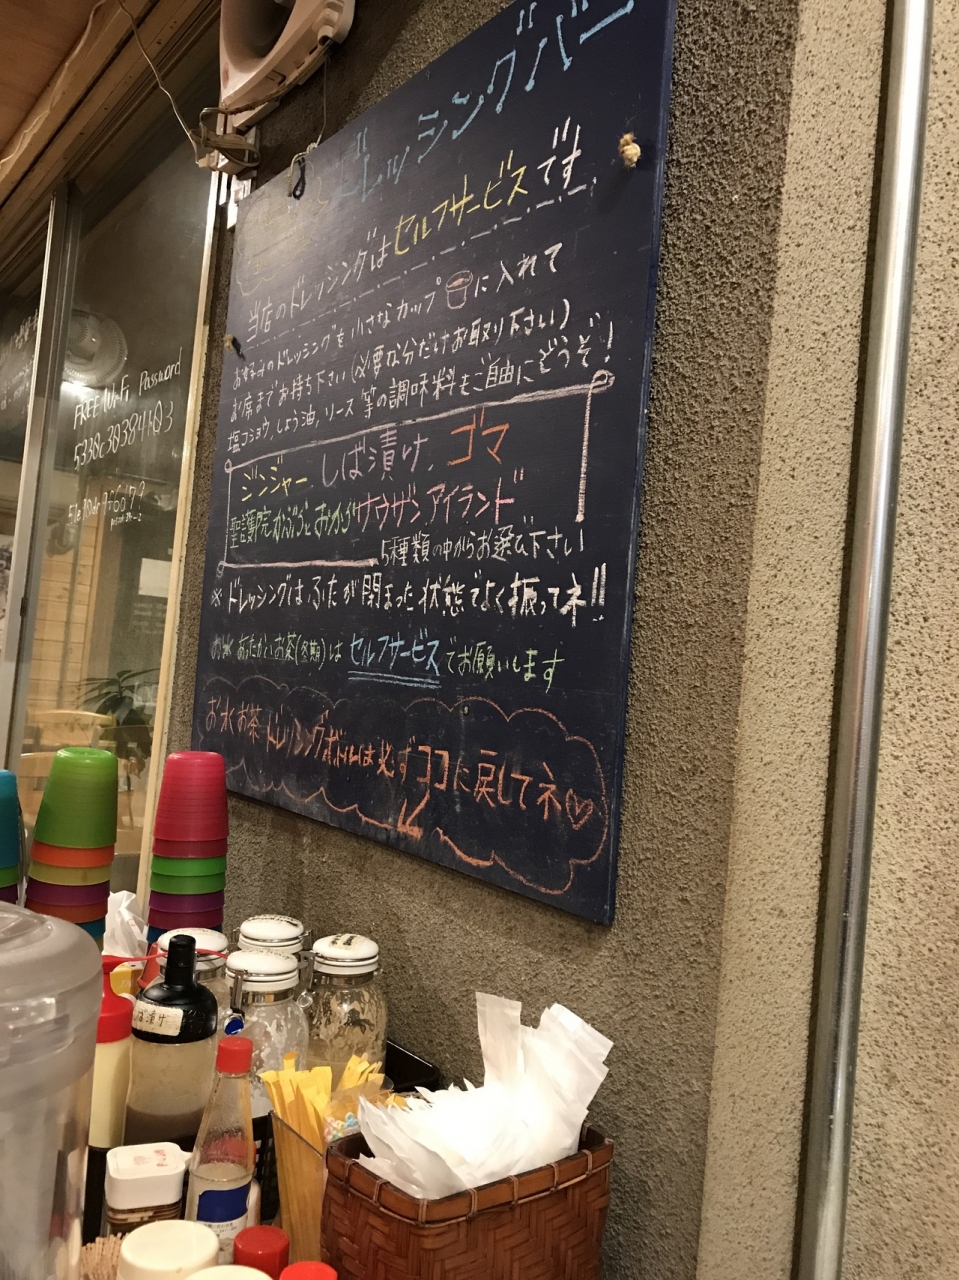 ドレッシングバー
当店のドレッシングはセルフサービスです。
お好みのドレッシングを小さなカップに入れて
お席までお持ち下さい(必要な分だけお取り下さい)
塩コショウ,しょう油,ソース等の調味料もご自由にどうぞ!
ジンジャー,しば漬け,ゴマ
聖護院かぶらとおかか サウザンアイランド
5種類の中からお選び下さい
※ドレッシングはふたが閉まった状態でよく振ってネ!!
お水 あたたかいお茶(冬期)は セルフサービスでお願いします
お水お茶 ドレッシングボトルは必ずココに戻してネ♡
FREE Wi-Fi Password
しば漬け